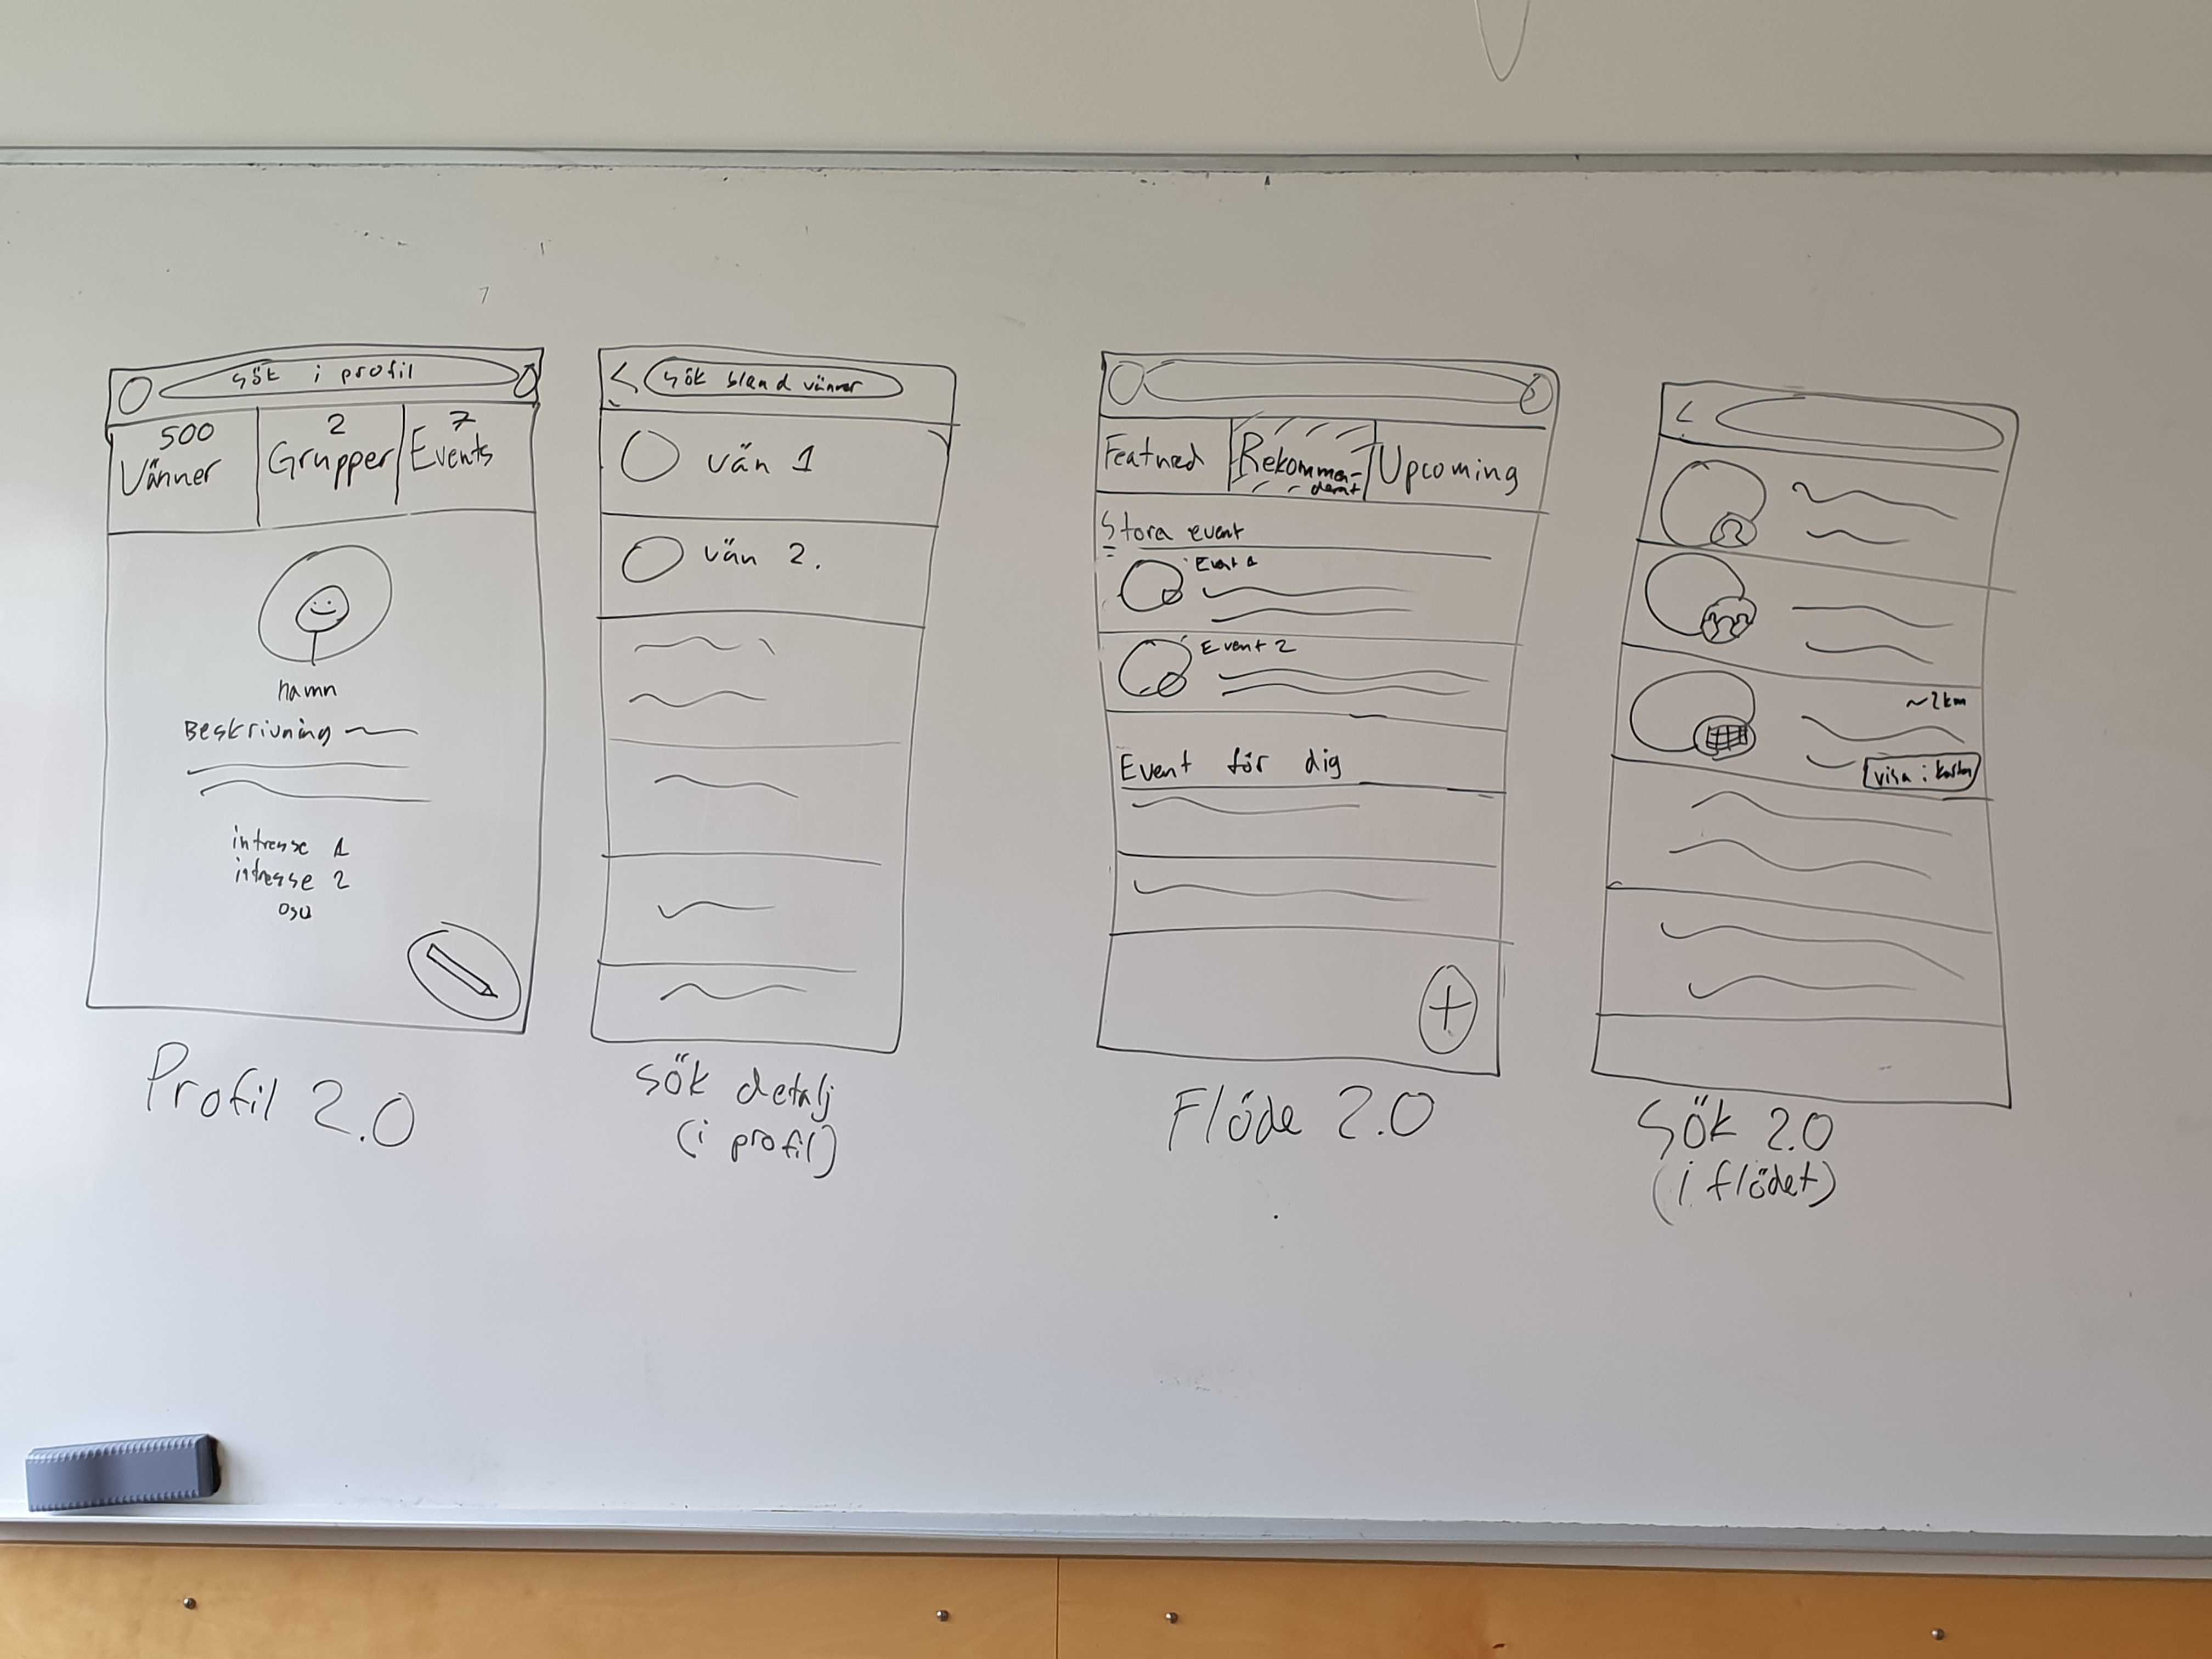 sök i profil
500
Vänner
2
Grupper
7
Events
namn
Beskrivning
intresse 1
intresse 2
osv
Profil 2.0
sök bland vänner
vän 1
vän 2.
sök detalj
(i profil)
Featured
Rekommen-
derat
Upcoming
Stora event
Event 1
Event 2
Event för dig
+
Flöde 2.0
~2km
visa i kartan
Sök 2.0
(i flödet)